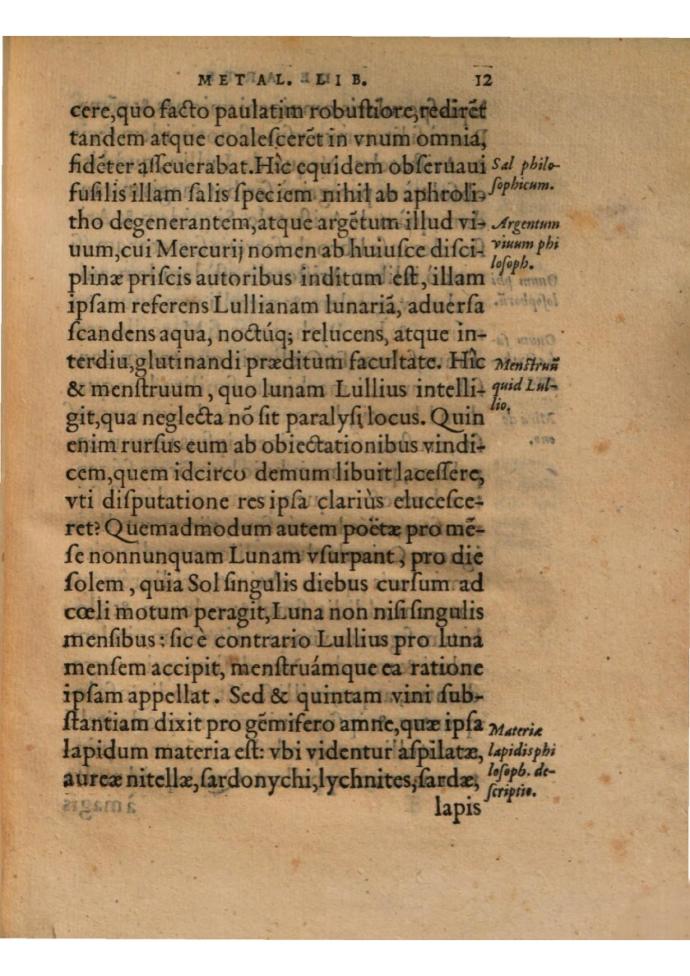 METAL. LIB. 12
cere,quo facto paulatim robuſtiore,rediret̃
tandem atque coaleſcerẽt in vnum omnia,
fidẽter aſſeuerabat.Hîc equidem obſeruaui
fuſilis illam ſalis ſpeciem nihil ab aphroli-
tho degenerantem,atque argẽtum illud vi-
uum,cui Mercurij nomen ab huiuſce diſci-
plinæ priſcis autoribus inditum eſt, illam
ipſam referens Lullianam lunariã, aduerſa
ſcandens aqua, noctúq; relucens, atque in-
terdiu,glutinandi præditum facultate. Hîc
& menſtruum, quo lunam Lullius intelli-
git,qua neglecta nõ ſit paralyſi locus. Quin
enim rurſus eum ab obiectationibus vindi-
cem,quem idcirco demum libuit laceſſere,
vti diſputatione res ipſa clariùs eluceſce-
ret? Quemadmodum autem poëtæ pro mẽ-
ſe nonnunquam Lunam vſurpant, pro die
ſolem, quia Sol ſingulis diebus curſum ad
cœli motum peragit,Luna non niſi ſingulis
menſibus: ſic è contrario Lullius pro luna
menſem accipit, menſtruámque ea ratione
ipſam appellat. Sed & quintam vini ſub-
ſtantiam dixit pro gẽmifero amne,quæ ipſa
lapidum materia eſt: vbi videntur aſpilatæ,
aureæ nitellæ,ſardonychi,lychnites,ſardæ,
lapis
Sal philo-
ſophicum.
Argentum
viuum phi
loſoph.
Menſtruũ
quid Lul-
lio.
Materiæ
lapidis phi
loſoph. de-
ſcriptio.